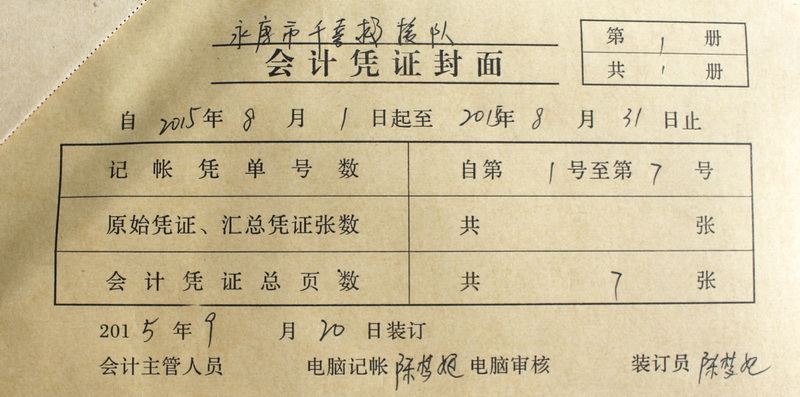 永康市千喜救援队
会计凭证封面
第 1 册
共 1 册
自 2015 年 8 月 1 日起至 2015 年 8 月 31 日止
记帐凭单号数 自第 1 号至第 7 号
原始凭证、汇总凭证张数 共 张
会计凭证总页数 共 7 张
2015 年 9 月 20 日装订
会计主管人员 电脑记帐 陈梦妃 电脑审核 装订员 陈梦妃